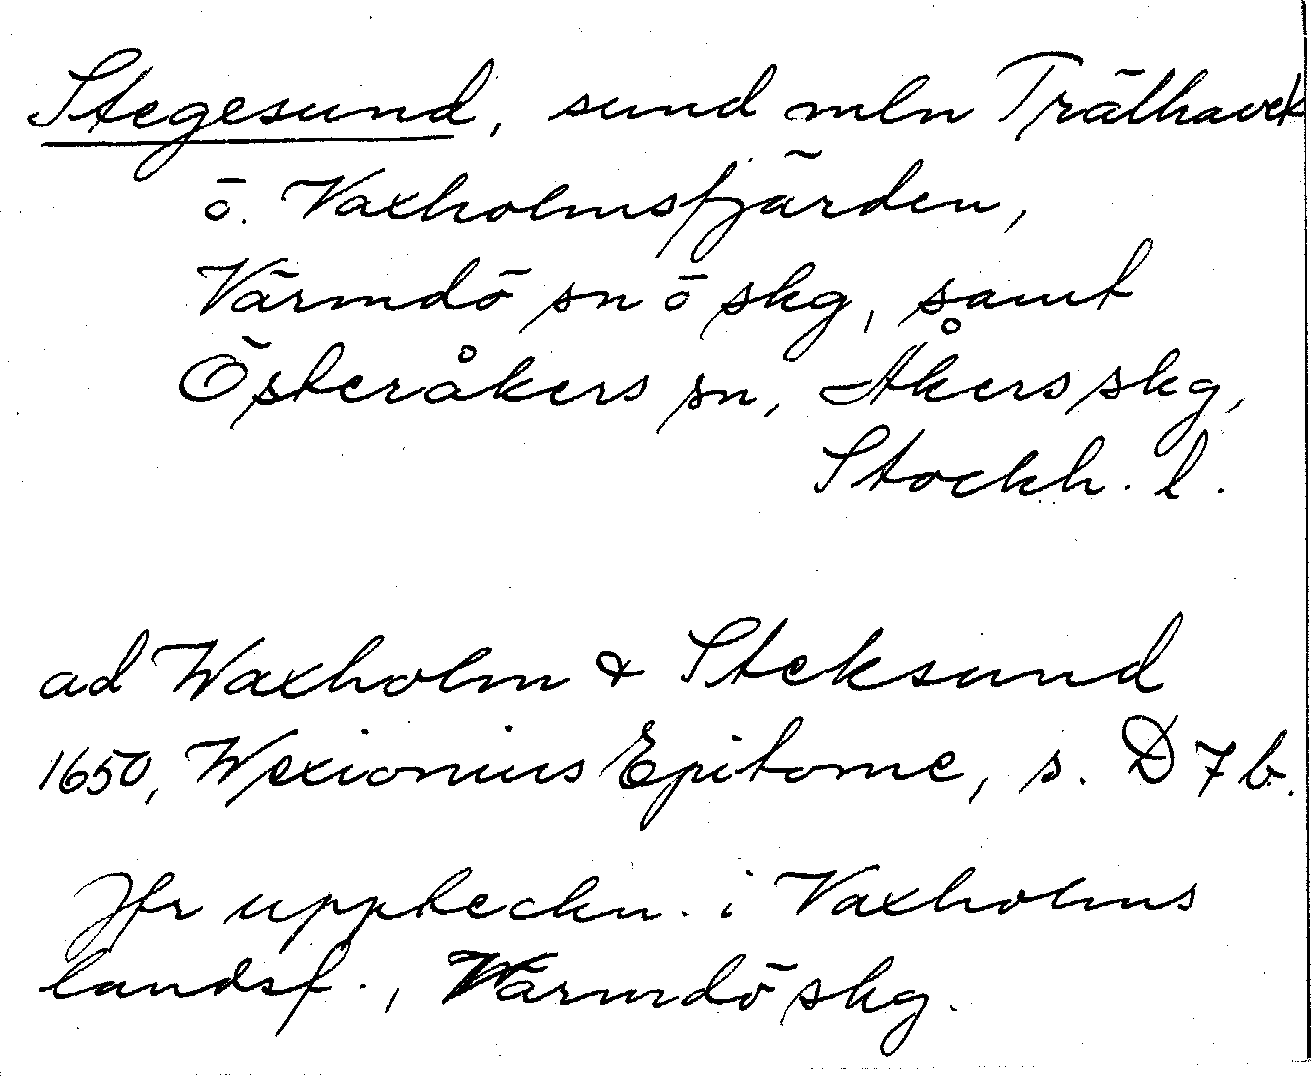 Stegesund, sund mln Trälhavet
ö. Vaxholmsfjärden,
Värmdö sn ö skg, samt
Österåkers sn, Åkers skg,
Stockh. l.
ad Waxholm & Steksund
1650, Wexionius Epitome, s. D 7 b.
Jfr uppteckn. i Vaxholms
landsf., Värmdö skg.